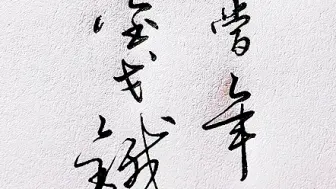 當年
金戈鐵